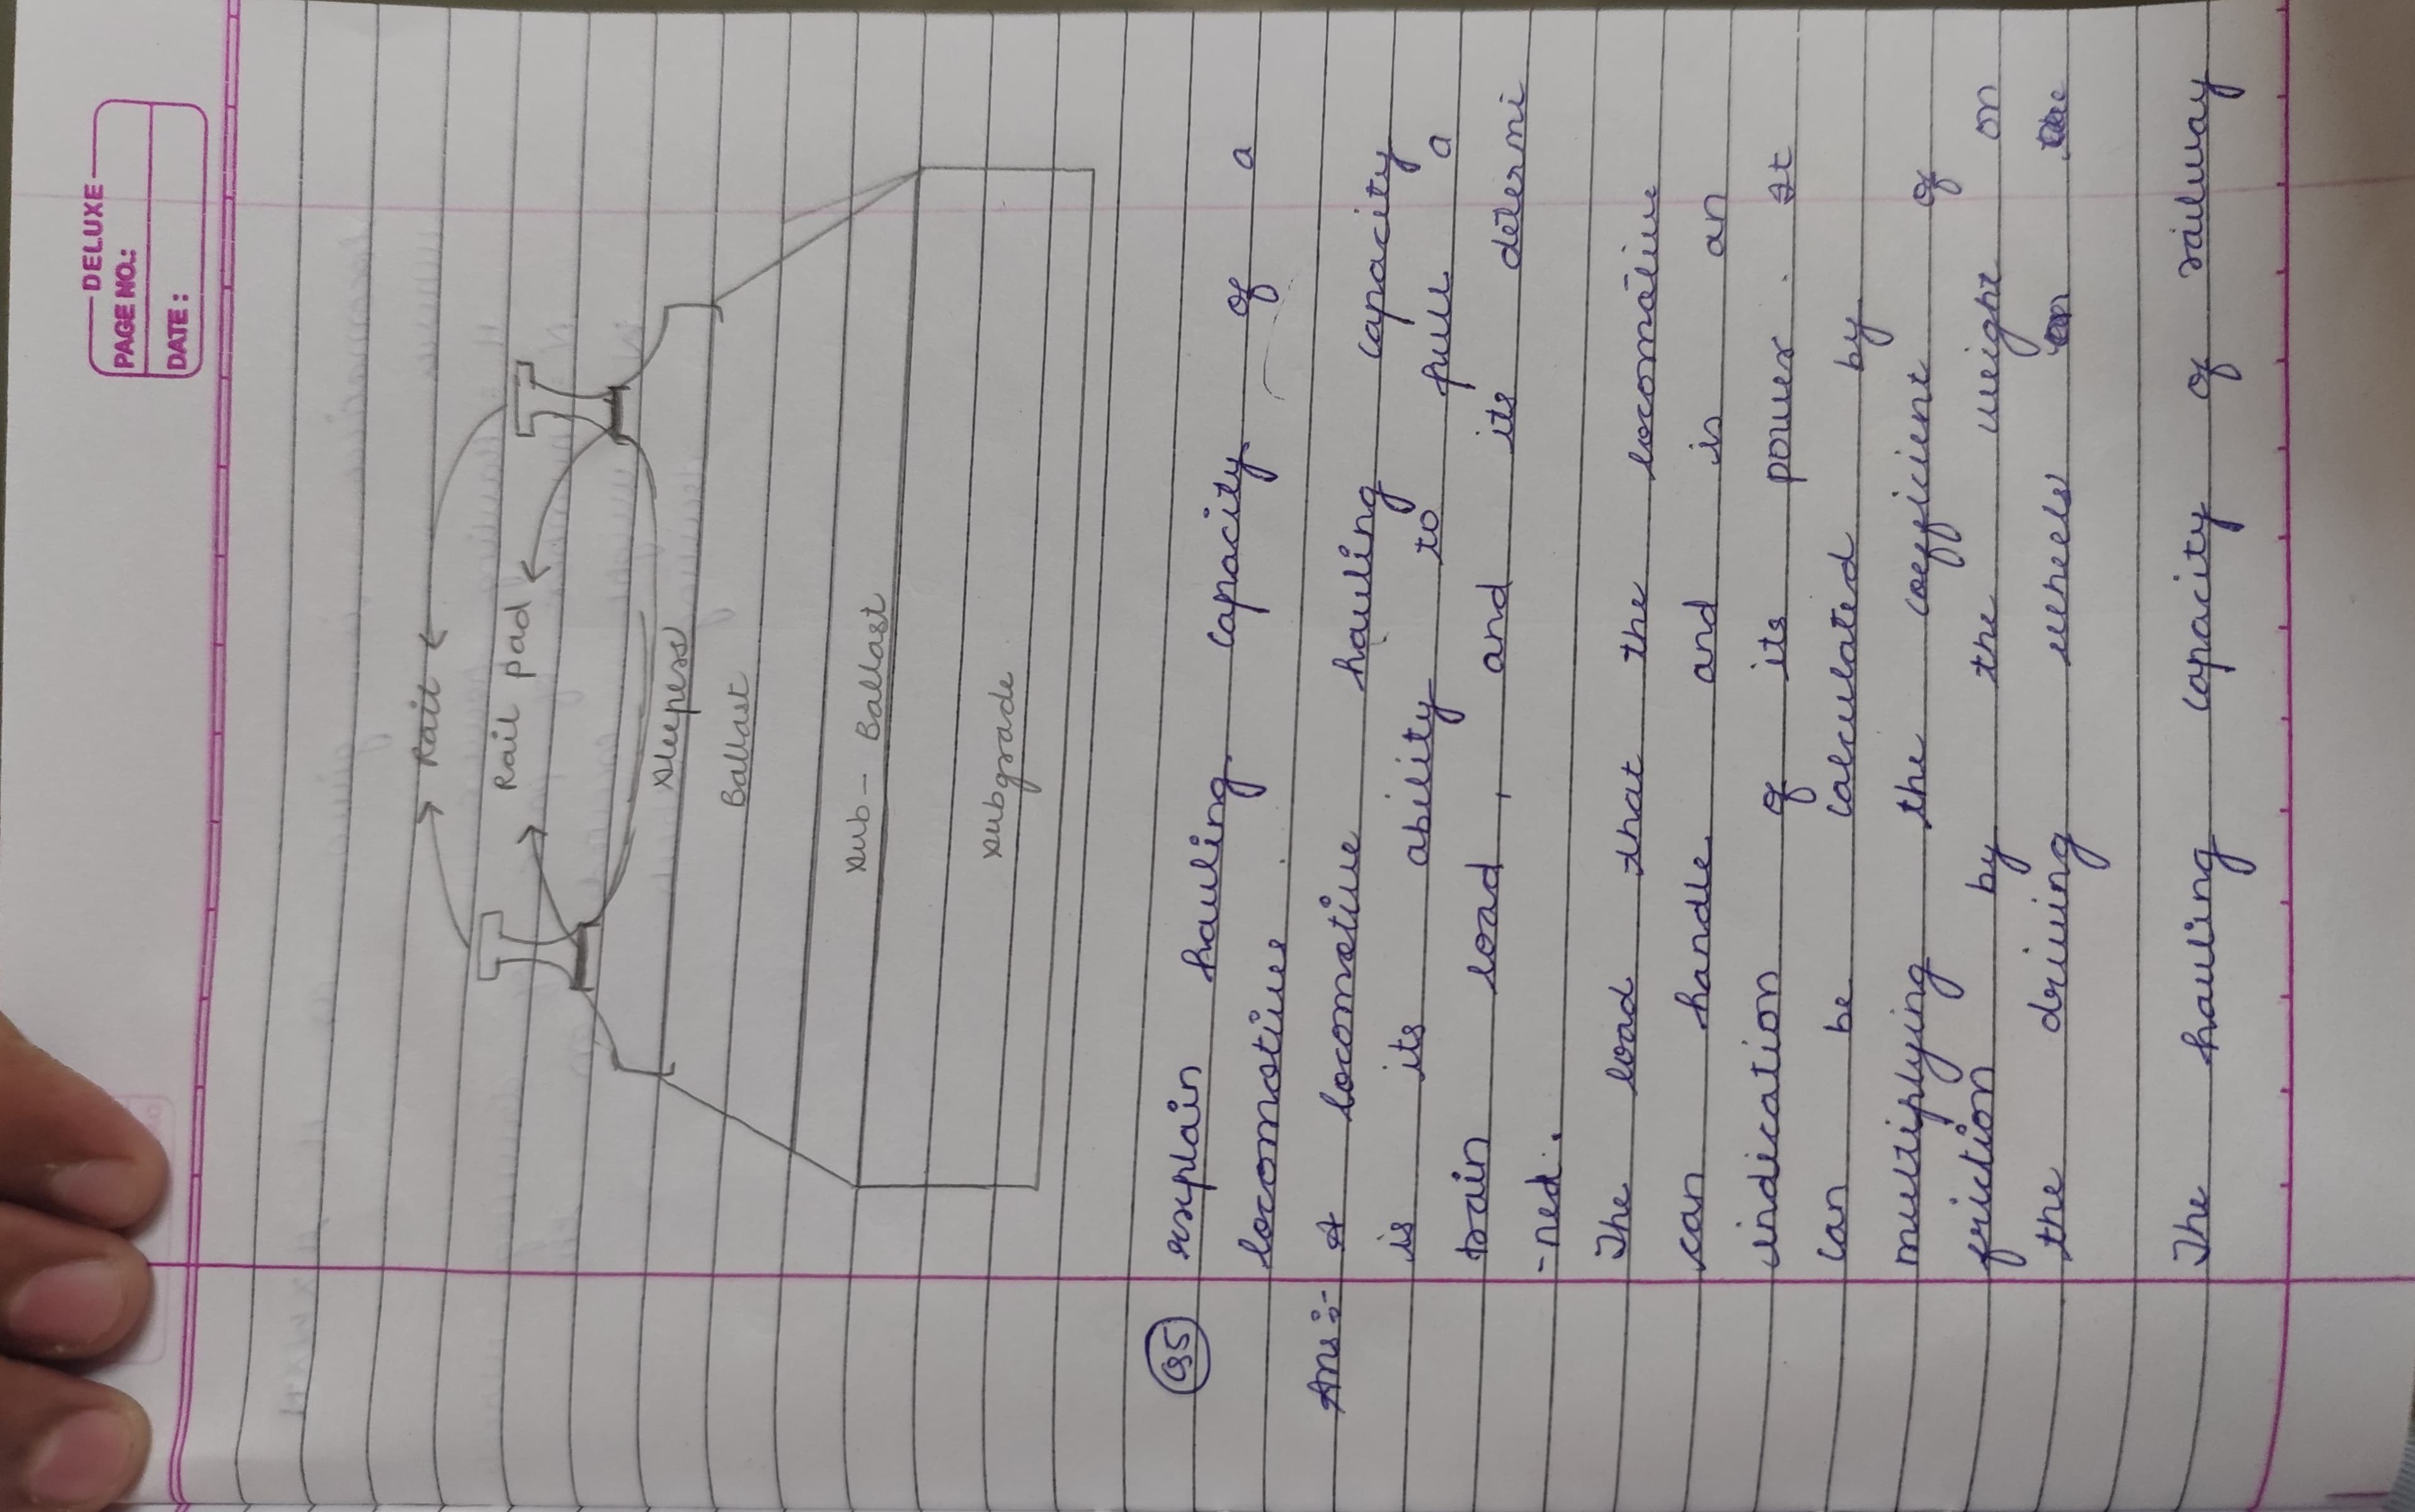 DELUXE
PAGE NO.:
DATE :
Rail
Rail pad
Sleepers
Ballast
Sub - Ballast
Subgrade
Q5 Explain hauling capacity of a
locomotive .
Ans:- A locomotive hauling capacity
is its ability to pull a
train load , and its determi
-ned .
The load that the locomotive
can handle and is an
indication of its power . It
can be calculated by
multiplying the coefficient of
friction by the weight on
the driving wheels
The hauling capacity of railway